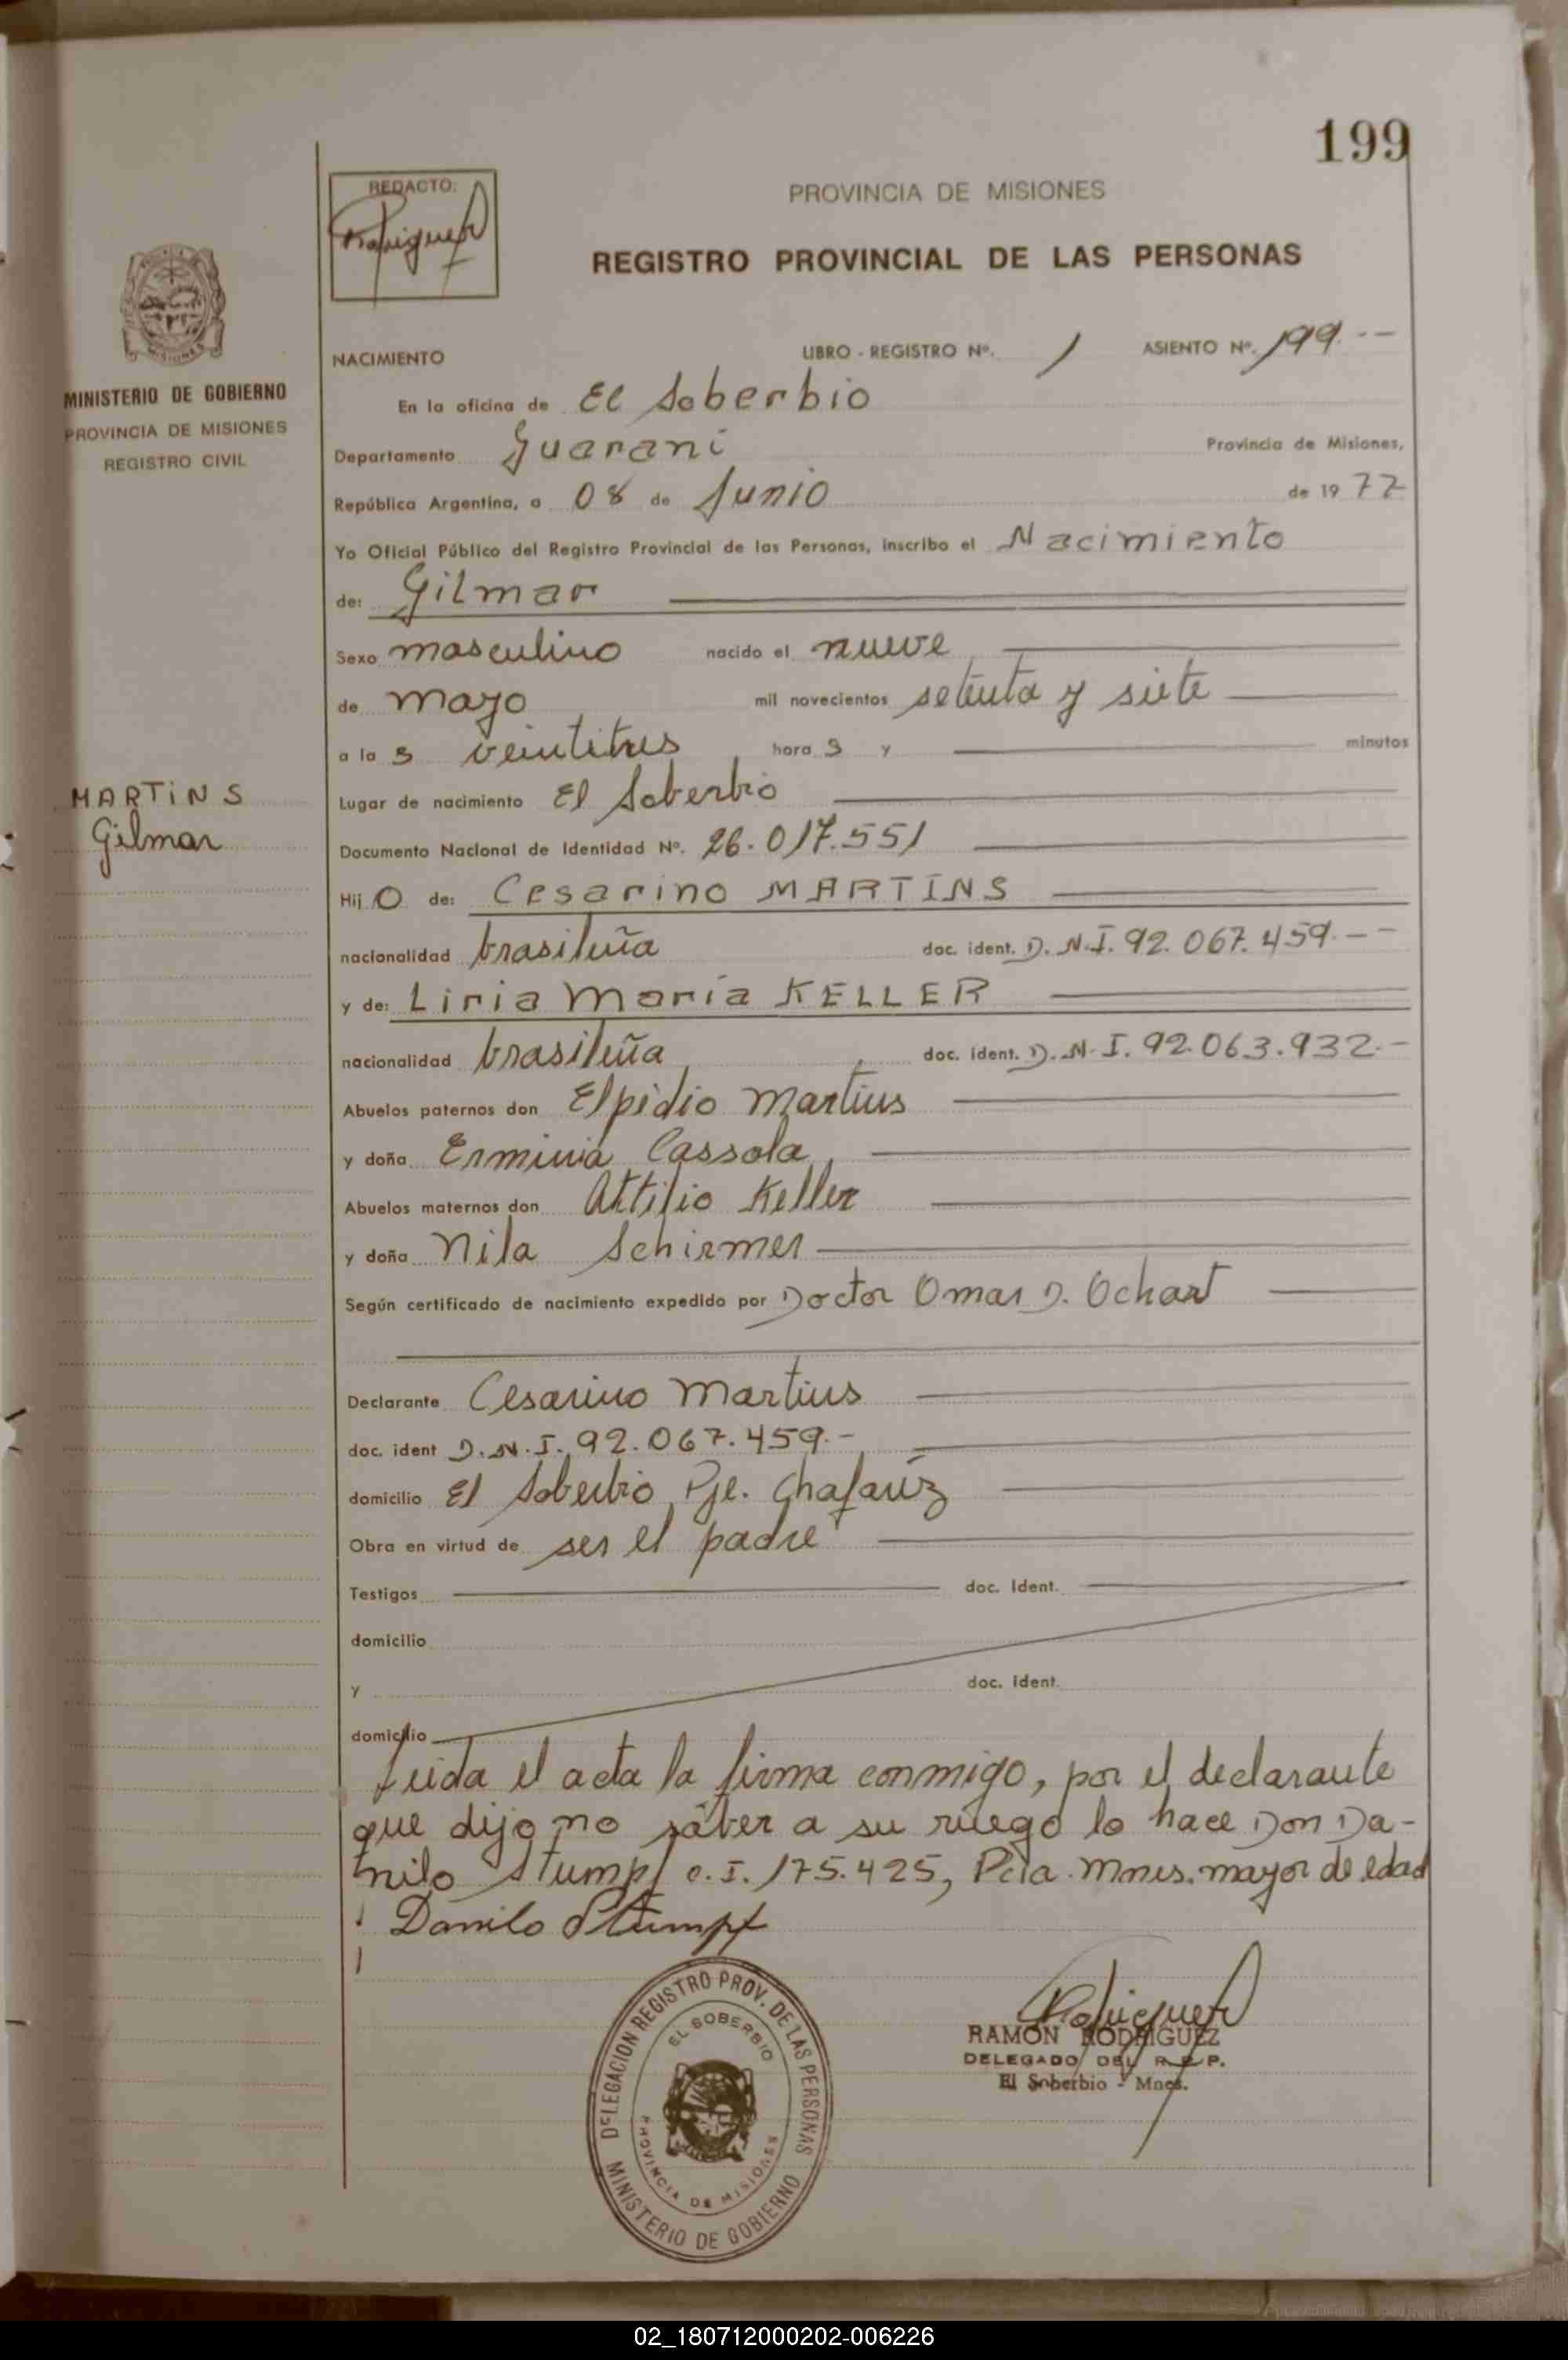 199
REDACTO:
Rodriguez
PROVINCIA DE MISIONES
REGISTRO PROVINCIAL DE LAS PERSONAS
MISIONES
MINISTERIO DE GOBIERNO
PROVINCIA DE MISIONES
REGISTRO CIVIL
NACIMIENTO LIBRO - REGISTRO Nº. 1 ASIENTO Nº. 199.--
En la oficina de El Soberbio
Departamento Guarani Provincia de Misiones,
República Argentina, a 08 de Junio de 19 77
Yo Oficial Público del Registro Provincial de las Personas, inscribo el Nacimiento
de: Gilmar
Sexo masculino nacido el nueve
de mayo mil novecientos setenta y siete
a la s veintitres hora s y minutos
MARTINS
Gilmar
Lugar de nacimiento El Soberbio
Documento Nacional de Identidad Nº. 26.017.551
Hij O de: Cesarino MARTINS
nacionalidad brasileña doc. ident. D.N.I. 92.067.459.--
y de: Liria María KELLER
nacionalidad brasileña doc. ident. D.N.I. 92.063.932.-
Abuelos paternos don Elpidio Martins
y doña Erminia Cassola
Abuelos maternos don Attilio Keller
y doña Nila Schirmer
Según certificado de nacimiento expedido por Doctor Omar D. Ochart
Declarante Cesarino Martins
doc. ident D.N.I. 92.067.459.-
domicilio El Soberbio, Pje. Chafariz
Obra en virtud de ser el padre
Testigos doc. Ident.
domicilio
y doc. Ident.
domicilio
Leida el acta la firma conmigo, por el declarante
que dijo no sáber a su ruego lo hace Don Da-
nilo Stumpf c.I. 175.425, Pcia. Mnes. mayor de edad
Danilo Stumpf
DELEGACION REGISTRO PROV. DE LAS PERSONAS
EL SOBERBIO
PROVINCIA DE MISIONES
MINISTERIO DE GOBIERNO
Rodriguez
RAMON RODRIGUEZ
DELEGADO DEL R.P.P.
El Soberbio - Mnes.
02_180712000202-006226